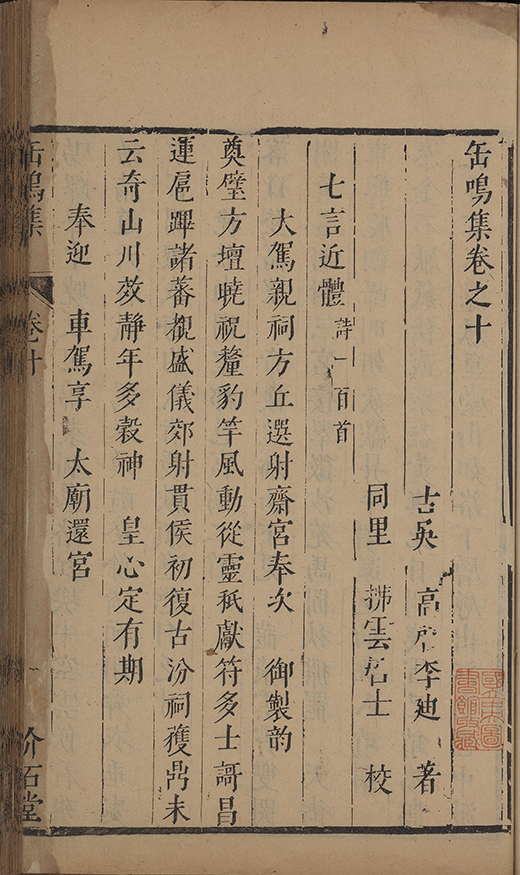 缶鳴集卷之十
古吳 高啓季迪 著
同里 拂雲居士 校
七言近體 詩一百首
大駕親祠方丘選射齋宮奉次 御製韵
奠璧方壇曉祝釐豹竿風動從靈秖獻符多士謌昌
運扈蹕諸蕃覩盛儀郊射貫侯初復古汾祠獲鼎未
云奇山川效靜年多穀神 皇心定有期
奉迎 車駕享 太廟還宮
缶鳴集 卷十 一 介石堂